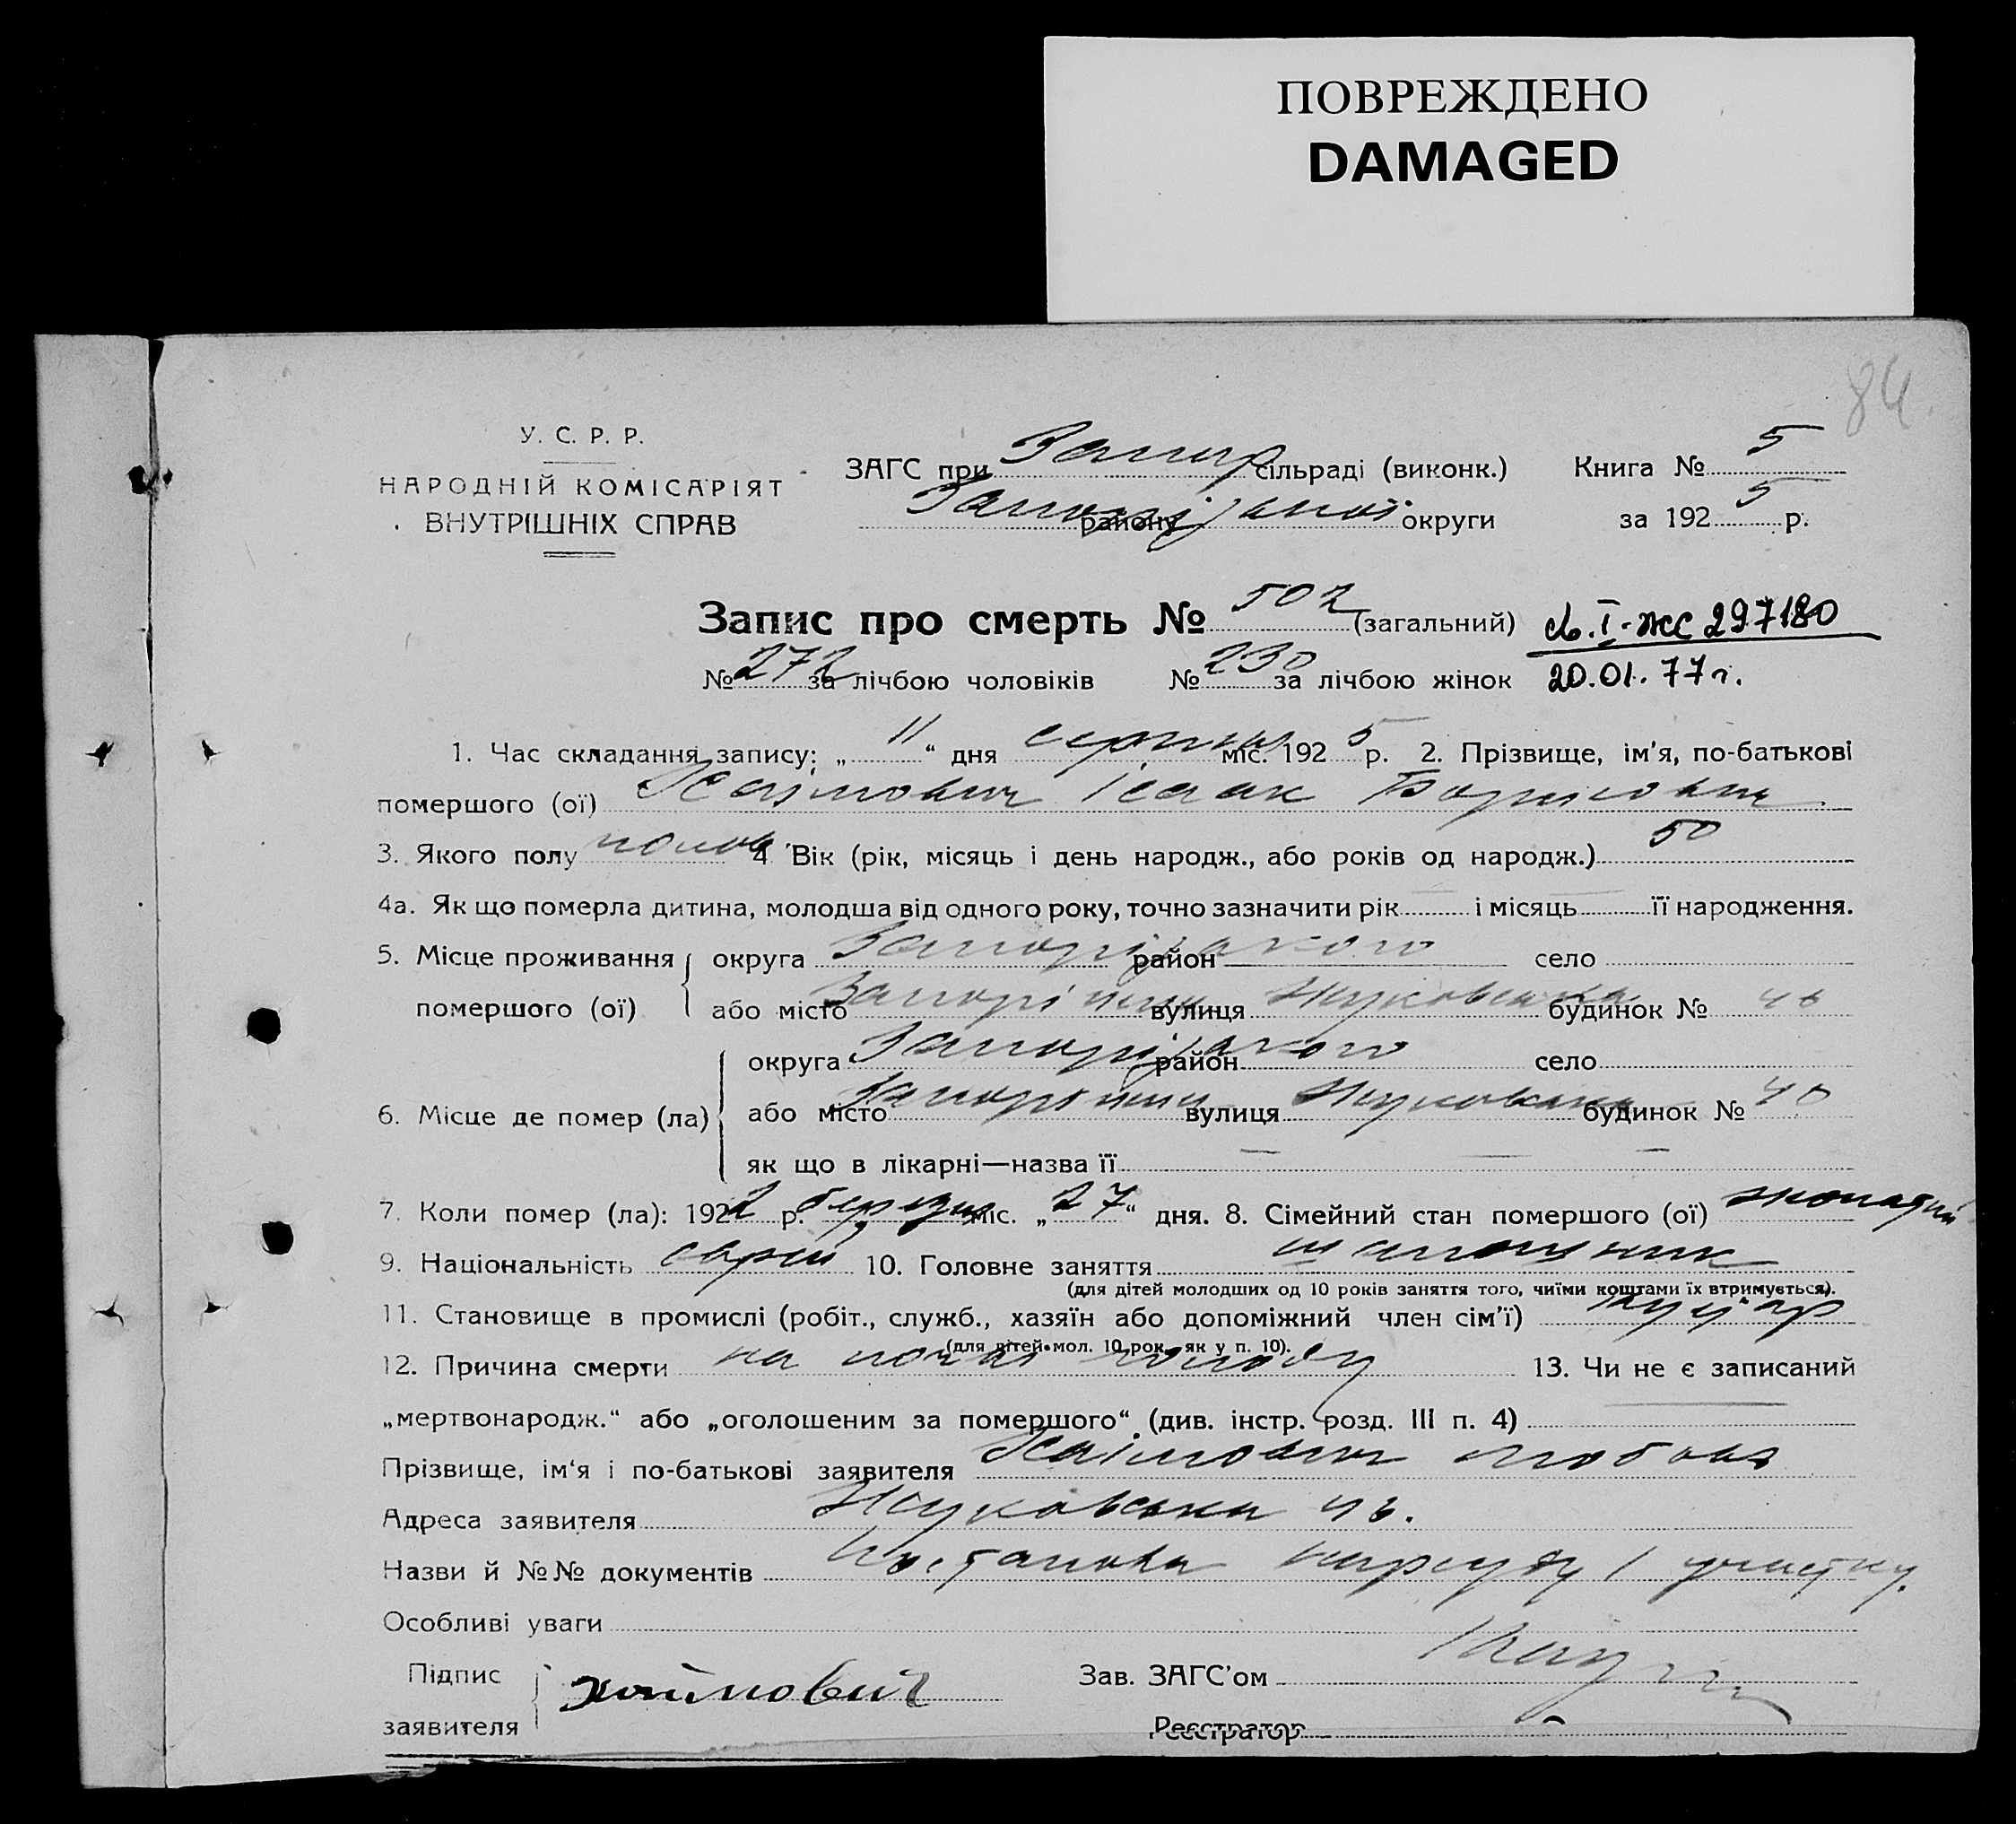 ПОВРЕЖДЕНО
DAMAGED
84
У. С. Р. Р.
НАРОДНІЙ КОМІСАРІЯТ
ВНУТРІШНІХ СПРАВ
ЗАГС при Запор сільраді (виконк.) Книга № 5
району Запорізької округи за 192 5 р.
Запис про смерть № 502 (загальний) св. I-ЖС 297180
№ 272 за лічбою чоловіків № 230 за лічбою жінок 20.01.77 г.
1. Час складання запису: „ 11 “ дня серпня міс. 192 5 р. 2. Прізвище, ім'я, по-батькові
помершого (ої) Хаімович Ісаак Борисович
3. Якого полу чолов 4 Вік (рік, місяць і день народж., або років од народж.) 50
4а. Як що померла дитина, молодша від одного року, точно зазначити рік — і місяць — її народження.
5. Місце проживання округа Запорізького район село
помершого (ої) або місто Запоріжжя вулиця Жуковська будинок № 46
округа Запорізького район село
6. Місце де помер (ла) або місто Запоріжжя вулиця Жуковська будинок №
як що в лікарні—назва її — — —
7. Коли помер (ла): 192 2 р. березня міс. „ 27 “ дня. 8. Сімейний стан помершого (ої) жонатий
9. Національність єврей 10. Головне заняття
(для дітей молодших од 10 років заняття того, чиїми коштами їх втримується).
11. Становище в промислі (робіт., служб., хазяїн або допоміжний член сім'ї)
(для дітей мол. 10 рок. як у п. 10).
12. Причина смерти на голоду 13. Чи не є записаний
„мертвонародж.“ або „оголошеним за помершого“ (див. інстр. розд. III п. 4) —
Прізвище, ім'я і по-батькові заявителя Хаімович
Адреса заявителя Жуковська 46.
Назви й №№ документів Постанова нарсуду 1 участку.
Особливі уваги
Підпис
заявителя Хаймович Зав. ЗАГС'ом
Реєстратор